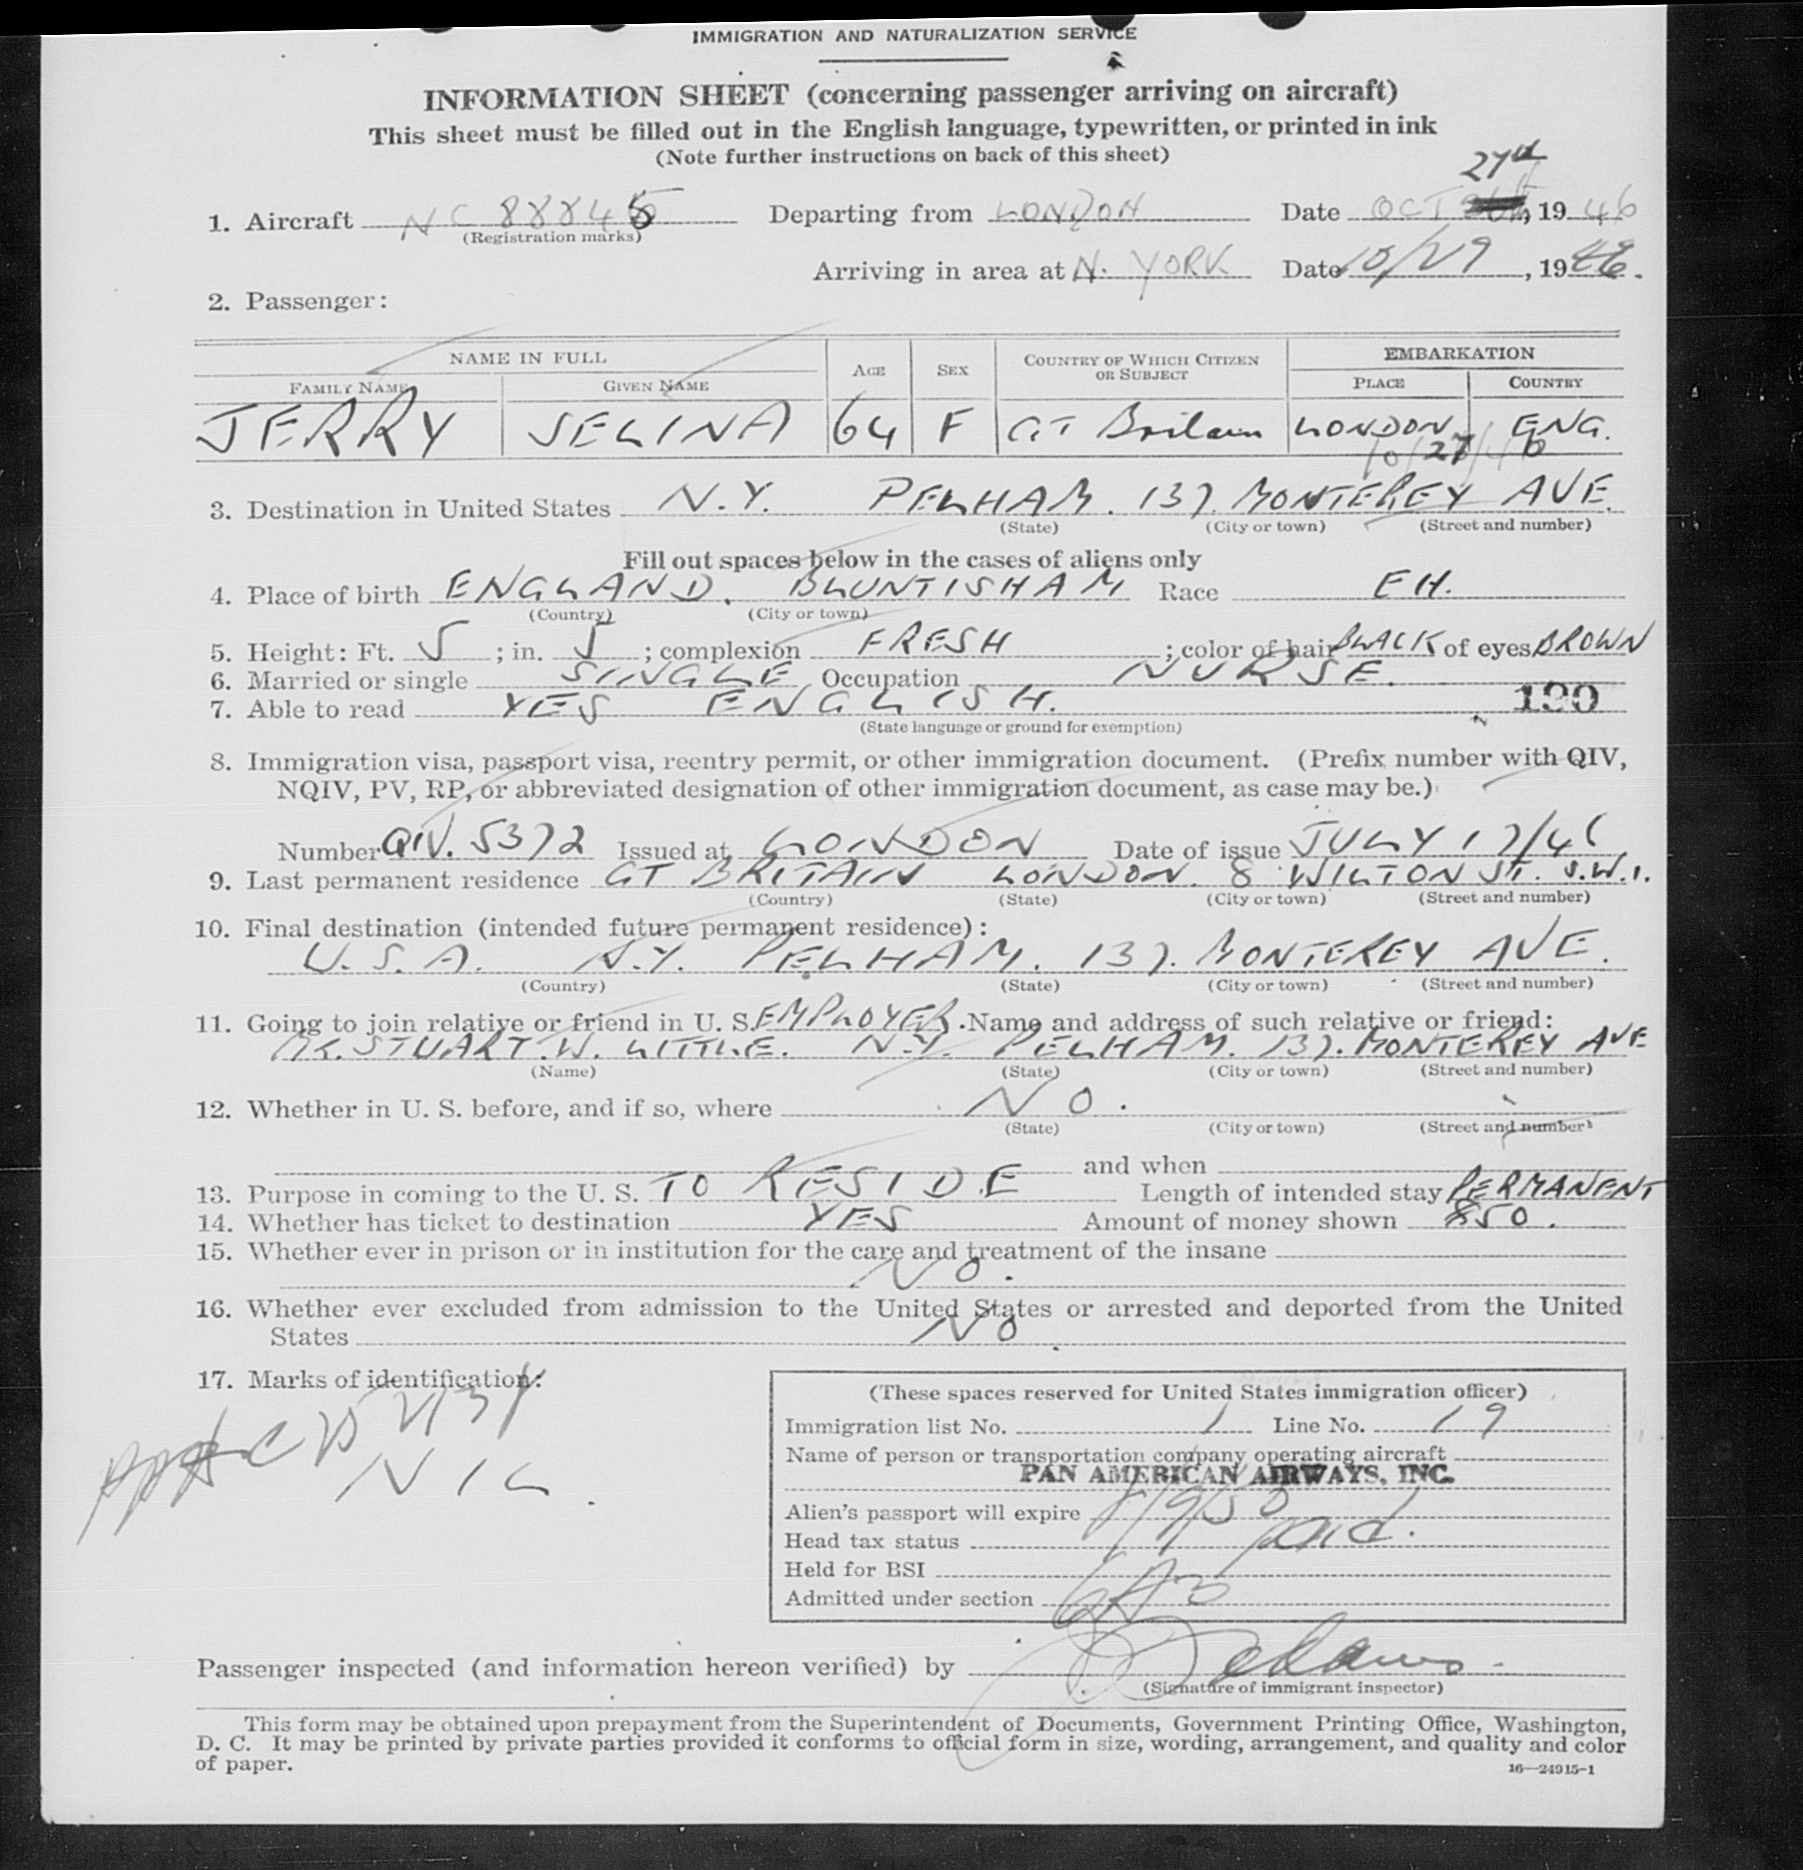 IMMIGRATION AND NATURALIZATION SERVICE
INFORMATION SHEET (concerning passenger arriving on aircraft)
This sheet must be filled out in the English language, typewritten, or printed in ink
(Note further instructions on back of this sheet)
27th
1. Aircraft NC 88845 Departing from LONDON Date OCT, 1946
(Registration marks)
Arriving in area at N. YORK Date 10/29, 1946.
2. Passenger:
NAME IN FULL AGE SEX COUNTRY OF WHICH CITIZEN OR SUBJECT EMBARKATION
FAMILY NAME GIVEN NAME PLACE COUNTRY
JERRY SELINA 64 F GT Britain LONDON ENG.
10/27/46
3. Destination in United States N.Y. PELHAM. 137. MONTEREY AVE.
(State) (City or town) (Street and number)
Fill out spaces below in the cases of aliens only
4. Place of birth ENGLAND. BLUNTISHAM Race EH.
(Country) (City or town)
5. Height: Ft. 5; in. 5; complexion FRESH; color of hair BLACK of eyes BROWN
6. Married or single SINGLE Occupation NURSE.
7. Able to read YES ENGLISH. 190
(State language or ground for exemption)
8. Immigration visa, passport visa, reentry permit, or other immigration document. (Prefix number with QIV,
NQIV, PV, RP, or abbreviated designation of other immigration document, as case may be.)
Number QIV. 5372 Issued at LONDON Date of issue JULY 17/46
9. Last permanent residence GT BRITAIN LONDON. 8 WILTON ST. S.W.1.
(Country) (State) (City or town) (Street and number)
10. Final destination (intended future permanent residence):
U.S.A. N.Y. PELHAM. 137. MONTEREY AVE.
(Country) (State) (City or town) (Street and number)
11. Going to join relative or friend in U. S. EMPLOYER. Name and address of such relative or friend:
MR. STUART. W. LITTLE. N.Y. PELHAM. 137. MONTEREY AVE
(Name) (State) (City or town) (Street and number)
12. Whether in U. S. before, and if so, where NO.
(State) (City or town) (Street and number)
and when
13. Purpose in coming to the U. S. TO RESIDE Length of intended stay PERMANENT
14. Whether has ticket to destination YES Amount of money shown $50.
15. Whether ever in prison or in institution for the care and treatment of the insane
NO.
16. Whether ever excluded from admission to the United States or arrested and deported from the United
States NO
17. Marks of identification:
NIL.
(These spaces reserved for United States immigration officer)
Immigration list No. 1 Line No. 19
Name of person or transportation company operating aircraft
PAN AMERICAN AIRWAYS, INC.
Alien's passport will expire
Head tax status paid.
Held for BSI
Admitted under section 6A3
Passenger inspected (and information hereon verified) by
(Signature of immigrant inspector)
This form may be obtained upon prepayment from the Superintendent of Documents, Government Printing Office, Washington,
D. C. It may be printed by private parties provided it conforms to official form in size, wording, arrangement, and quality and color
of paper.
16—24915-1